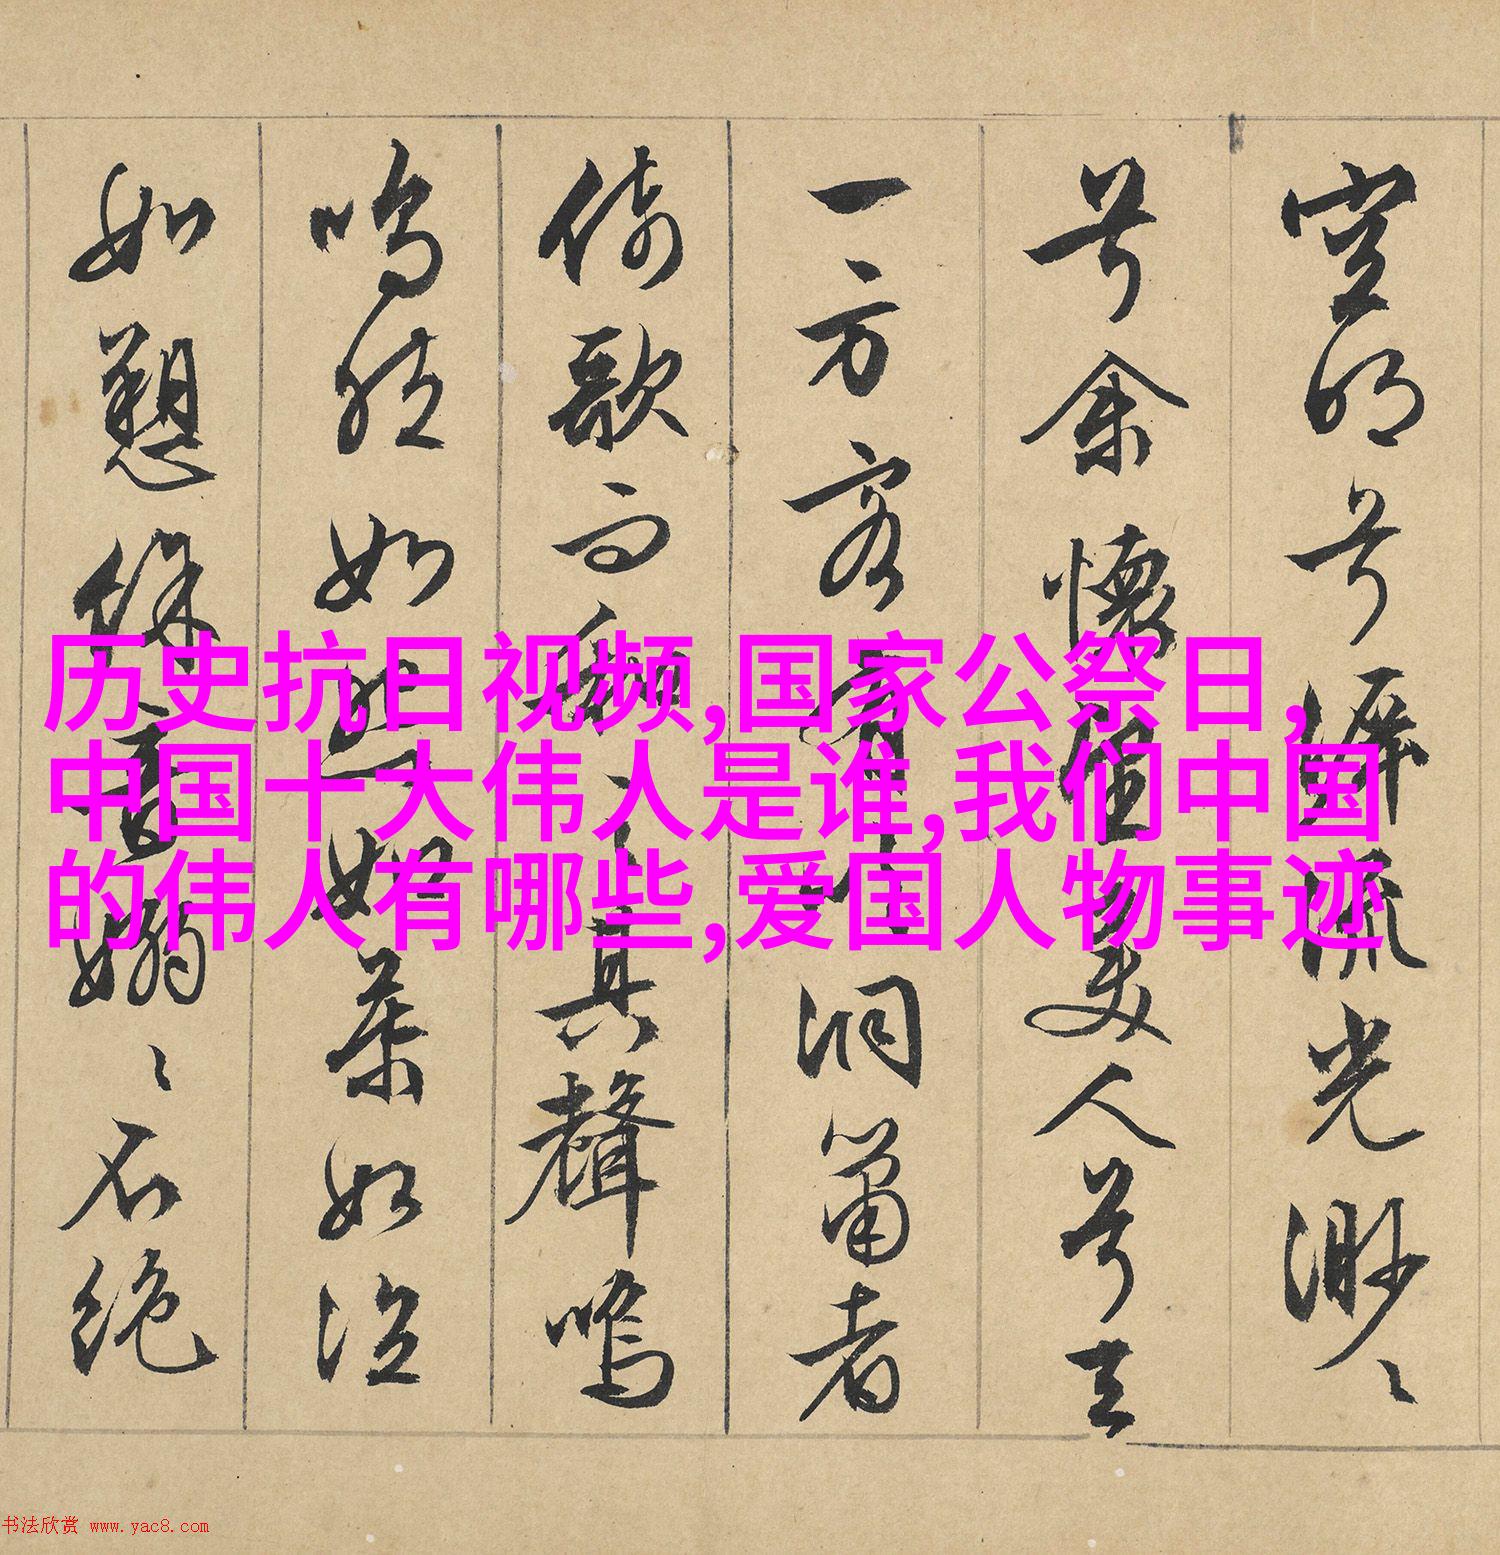 空明兮泝流光渺〻
兮余懷望美人兮天
一方客有吹洞簫者
倚歌而和之其聲嗚
嗚然如怨如慕如泣
如愬餘音嫋〻不絕
历史抗日视频,国家公祭日,
中国十大伟人是谁,我们中国
的伟人有哪些,爱国人物事迹
书法欣赏 www.yac8.com